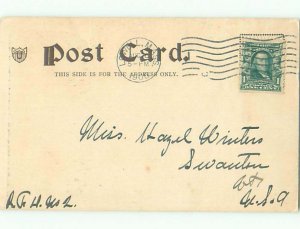 Post Card.
THIS SIDE IS FOR THE ADDRESS ONLY.
5-PM
Miss Hazel Winters
Swanton
Vt
U.S.A
R.F.D. No 2.